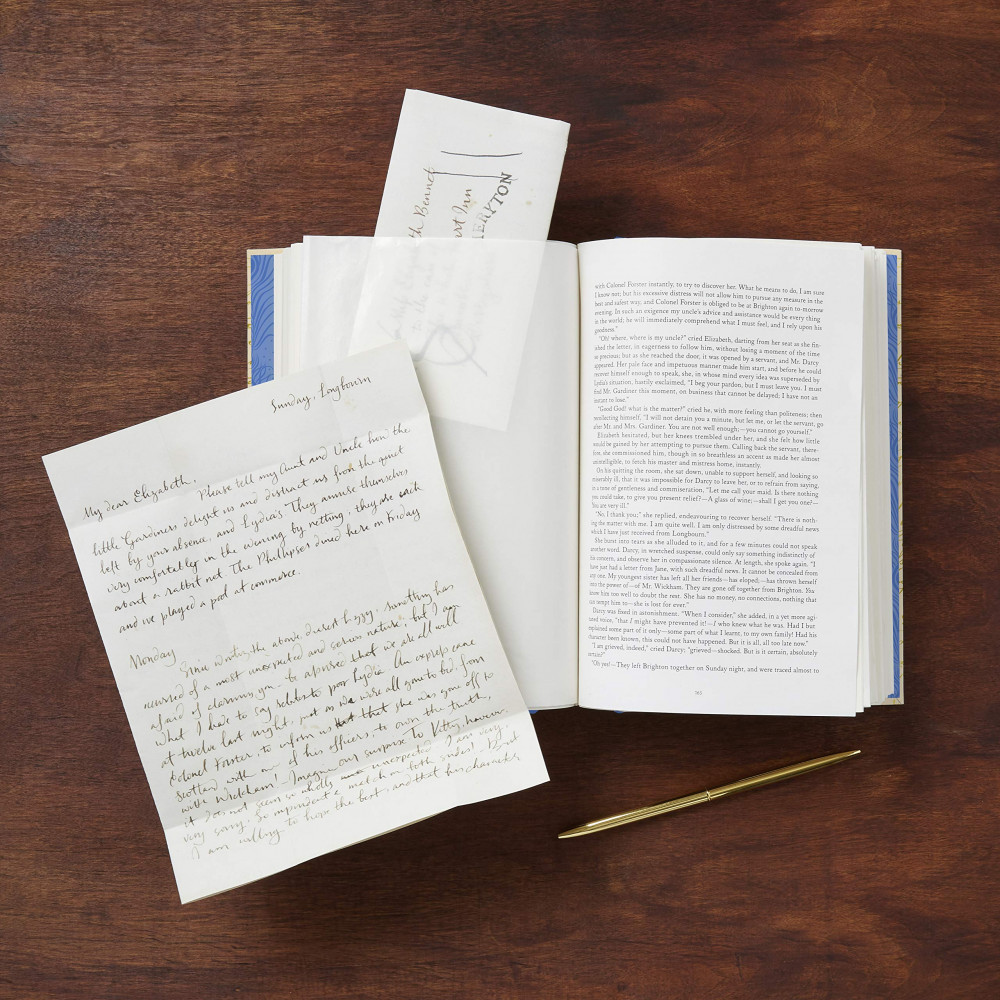 th Bennet
art Inn
MERYTON
Sunday, Longbourn
My dear Elizabeth,
Please tell my Aunt and Uncle how the
little Gardiners delight us and distract us from the quiet
left by your absence, and Lydia's. They amuse themselves
very comfortably in the evening by netting; they are each
about a rabbit net. The Phillipses dined here on Friday
and we played a pool at commerce.
Monday
Since writing the above, dearest Lizzy, something has
occurred of a most unexpected and serious nature; but I am
afraid of alarming you - be assured that we are all well.
What I have to say relates to poor Lydia. An express came
at twelve last night, just as we were all gone to bed, from
Colonel Forster, to inform us that she was gone off to
Scotland with one of his officers; to own the truth,
with Wickham! Imagine our surprise. To Kitty, however,
it does not seem so wholly unexpected. I am very,
very sorry. So imprudent a match on both sides! But
I am willing to hope the best, and that his character
with Colonel Forster instantly, to try to discover her. What he means to do, I am sure
I know not; but his excessive distress will not allow him to pursue any measure in the
best and safest way, and Colonel Forster is obliged to be at Brighton again to-morrow
evening. In such an exigence my uncle's advice and assistance would be every thing
in the world; he will immediately comprehend what I must feel, and I rely upon his
goodness."
"Oh! where, where is my uncle?" cried Elizabeth, darting from her seat as she fin-
ished the letter, in eagerness to follow him, without losing a moment of the time
so precious; but as she reached the door, it was opened by a servant, and Mr. Darcy
appeared. Her pale face and impetuous manner made him start, and before he could
recover himself enough to speak, she, in whose mind every idea was superseded by
Lydia's situation, hastily exclaimed, "I beg your pardon, but I must leave you. I must
find Mr. Gardiner this moment, on business that cannot be delayed; I have not an
instant to lose."
"Good God! what is the matter?" cried he, with more feeling than politeness; then
recollecting himself, "I will not detain you a minute, but let me, or let the servant, go
after Mr. and Mrs. Gardiner. You are not well enough;—you cannot go yourself."
Elizabeth hesitated, but her knees trembled under her, and she felt how little
would be gained by her attempting to pursue them. Calling back the servant, there-
fore, she commissioned him, though in so breathless an accent as made her almost
unintelligible, to fetch his master and mistress home, instantly.
On his quitting the room, she sat down, unable to support herself, and looking so
miserably ill, that it was impossible for Darcy to leave her, or to refrain from saying,
in a tone of gentleness and commiseration, "Let me call your maid. Is there nothing
you could take, to give you present relief?—A glass of wine;—shall I get you one?—
You are very ill."
"No, I thank you;" she replied, endeavouring to recover herself. "There is noth-
ing the matter with me. I am quite well. I am only distressed by some dreadful news
which I have just received from Longbourn."
She burst into tears as she alluded to it, and for a few minutes could not speak
another word. Darcy, in wretched suspense, could only say something indistinctly of
his concern, and observe her in compassionate silence. At length, she spoke again. "I
have just had a letter from Jane, with such dreadful news. It cannot be concealed from
any one. My youngest sister has left all her friends—has eloped;—has thrown herself
into the power of—of Mr. Wickham. They are gone off together from Brighton. You
know him too well to doubt the rest. She has no money, no connections, nothing that
can tempt him to—she is lost for ever."
Darcy was fixed in astonishment. "When I consider," she added, in a yet more agi-
tated voice, "that I might have prevented it!—I who knew what he was. Had I but
explained some part of it only—some part of what I learnt, to my own family! Had his
character been known, this could not have happened. But it is all, all too late now."
"I am grieved, indeed," cried Darcy; "grieved—shocked. But is it certain, absolutely
certain?"
"Oh yes!—They left Brighton together on Sunday night, and were traced almost to
165